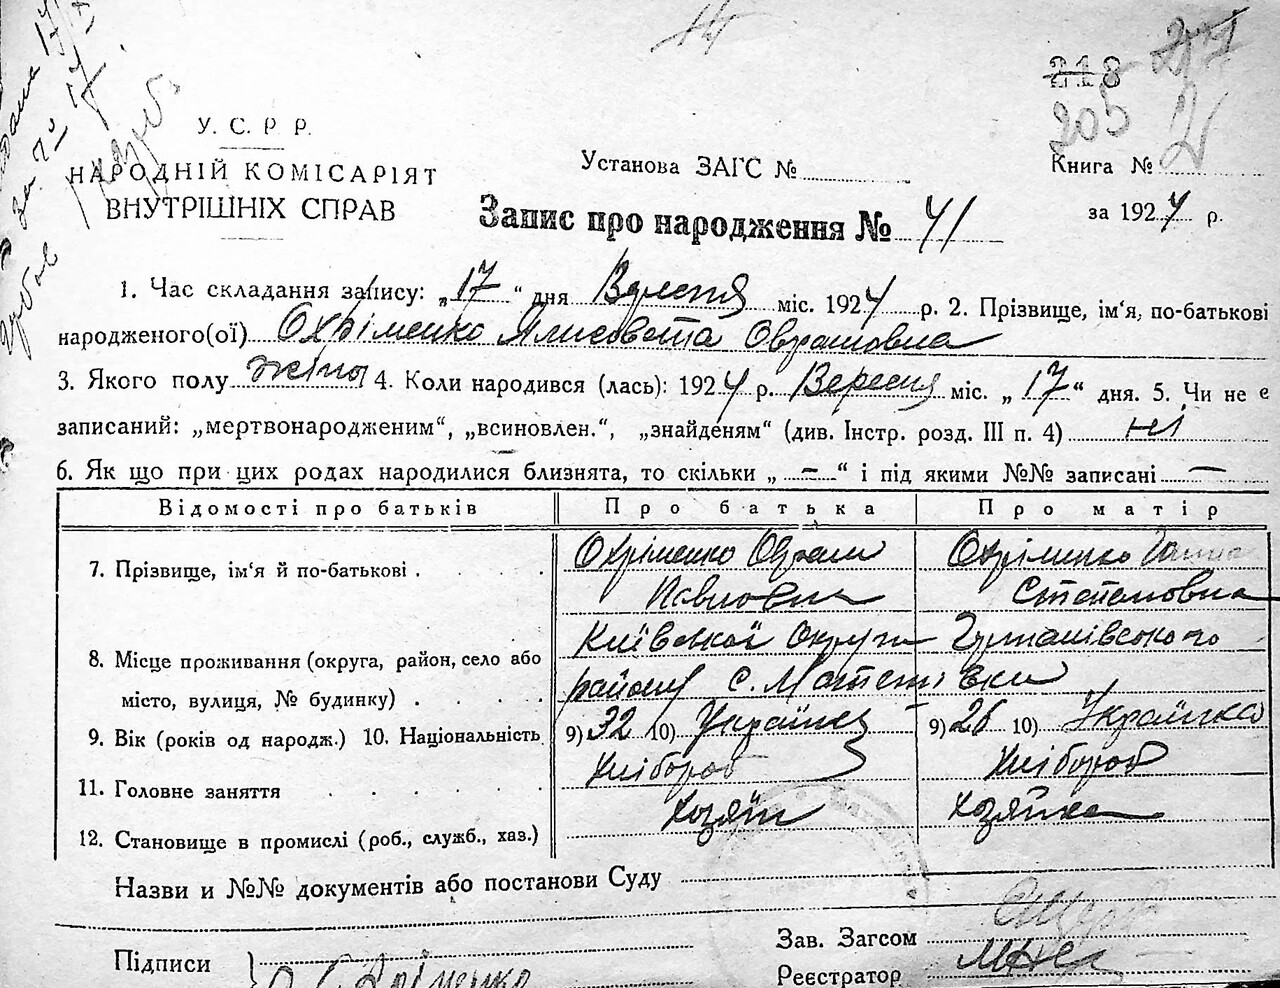 218
205
У. С. Р Р.
НАРОДНІЙ КОМІСАРІЯТ
ВНУТРІШНІХ СПРАВ
Установа ЗАГС №
Книга №
Запис про народження № 41
за 1924 р.
1. Час складання запису: „17“ дня Вересня міс. 1924 р. 2. Прізвище, ім‘я, по-батькові
народженого(ої) Охріменко Ялисовета Оврамовна
3. Якого полу жіно 4. Коли народився (лась): 1924 р. Вересня міс. „17“ дня. 5. Чи не є
записаний: „мертвонародженим“, „всиновлен.“, „знайденям“ (див. Інстр. розд. III п. 4) ні
6. Як що при цих родах народилися близнята, то скільки „—“ і під якими №№ записані —
Відомості про батьків Про батька Про матір
7. Прізвище, ім‘я й по-батькові . Охріменко Оврам Охріменко Ганна
Павлович Степановна
8. Місце проживання (округа, район, село або Київської Округи
місто, вулиця, № будинку) . району с.
9. Вік (років од народж.) 10. Національність 9) 32 10) Українец 9) 26 10) Українка
11. Головне заняття Хлібороб Хлібороб
12. Становище в промислі (роб., служб., хаз.) Хозяїн Хозяйка
Назви и №№ документів або постанови Суду
Зав. Загсом
Підписи Охріменко
Реєстратор